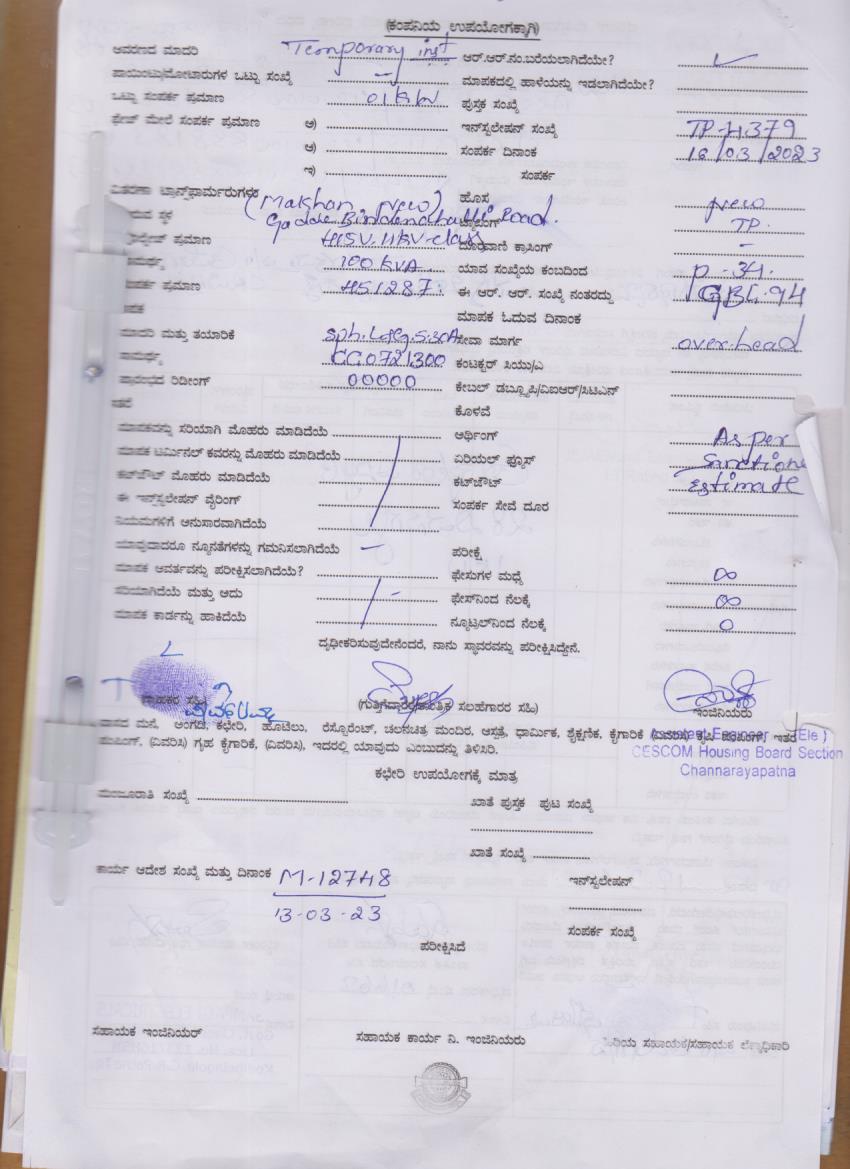 (ಕಂಪನಿಯ ಉಪಯೋಗಕ್ಕಾಗಿ)
ಆವರಣದ ಮಾದರಿ Temporary inst ಆರ್.ಆರ್.ನಂ.ಬರೆಯಲಾಗಿದೆಯೇ? ✓
ಪಾಯಿಂಟು/ಮೋಟಾರುಗಳ ಒಟ್ಟು ಸಂಖ್ಯೆ - ಮಾಪಕದಲ್ಲಿ ಹಾಳೆಯನ್ನು ಇಡಲಾಗಿದೆಯೇ?
ಒಟ್ಟು ಸಂಪರ್ಕ ಪ್ರಮಾಣ 01KW ಪುಸ್ತಕ ಸಂಖ್ಯೆ
ಫೇಜ್ ಮೇಲೆ ಸಂಪರ್ಕ ಪ್ರಮಾಣ ಅ) ಇನ್‌ಸ್ಟಲೇಷನ್ ಸಂಖ್ಯೆ TP-4379
ಆ) ಸಂಪರ್ಕ ದಿನಾಂಕ 16/03/2023
ಇ) ಸಂಪರ್ಕ
ವಿತರಣಾ ಟ್ರಾನ್ಸ್‌ಫಾರ್ಮರುಗಳು (Makhan New) ಹೊಸ New
ಸ್ಥಳ Gadde Bindenahalli Road. TP.
ಪ್ರಮಾಣ 415V. 11KV-class ದೂರವಾಣಿ ಕ್ರಾಸಿಂಗ್ -
100 KVA. ಯಾವ ಸಂಖ್ಯೆಯ ಕಂಬದಿಂದ P-34.
ಪ್ರಮಾಣ 451287. ಈ ಆರ್. ಆರ್. ಸಂಖ್ಯೆ ನಂತರದ್ದು GBL-94
ಮಾಪಕ ಓದುವ ದಿನಾಂಕ
ಮಾದರಿ ಮತ್ತು ತಯಾರಿಕೆ Sph. L&G. 5.30A ಸೇವಾ ಮಾರ್ಗ over.head
CC0721300 ಕಂಟಕ್ಟರ್ ಸಿಯು/ಎ
ಪ್ರಾರಂಭದ ರಿಡೀಂಗ್ 00000 ಕೇಬಲ್ ಡಬ್ಲ್ಯೂಪಿ/ವಿಐಆರ್/ಸಿಟಿಎನ್
ಕೊಳವೆ
ಮಾಪಕವನ್ನು ಸರಿಯಾಗಿ ಮೊಹರು ಮಾಡಿದೆಯೆ ಆರ್ಥಿಂಗ್ As per
ಮಾಪಕ ಟರ್ಮಿನಲ್ ಕವರನ್ನು ಮೊಹರು ಮಾಡಿದೆಯೆ ಏರಿಯಲ್ ಫ್ಯೂಸ್ Sanctione
ಕಟ್‌ಔಟ್ ಮೊಹರು ಮಾಡಿದೆಯೆ ಕಟ್‌ಔಟ್ Estimate
ಈ ಇನ್‌ಸ್ಟಲೇಷನ್ ವೈರಿಂಗ್ ಸಂಪರ್ಕ ಸೇವೆ ದೂರ
ನಿಯಮಗಳಿಗೆ ಅನುಸಾರವಾಗಿದೆಯೆ
ಯಾವುದಾದರೂ ನ್ಯೂನತೆಗಳನ್ನು ಗಮನಿಸಲಾಗಿದೆಯೆ - ಪರೀಕ್ಷೆ
ಮಾಪಕ ಆವರ್ತವನ್ನು ಪರೀಕ್ಷಿಸಲಾಗಿದೆಯೆ? ಫೇಸುಗಳ ಮಧ್ಯೆ ∞
ಸರಿಯಾಗಿದೆಯೆ ಮತ್ತು ಆದು - ಫೇಸ್‌ನಿಂದ ನೆಲಕ್ಕೆ ∞
ಮಾಪಕ ಕಾರ್ಡನ್ನು ಹಾಕಿದೆಯೆ ನ್ಯೂಟ್ರಲ್‌ನಿಂದ ನೆಲಕ್ಕೆ 0
ದೃಢೀಕರಿಸುವುದೇನೆಂದರೆ, ನಾನು ಸ್ಥಾವರವನ್ನು ಪರೀಕ್ಷಿಸಿದ್ದೇನೆ.
ಸಹಿ) (ಗುತ್ತಿಗೆದಾರರ/ತಾಂತ್ರಿಕ ಸಲಹೆಗಾರರ ಸಹಿ) ಇಂಜಿನಿಯರು
ವಾಸದ ಮನೆ, ಅಂಗಡಿ, ಕಛೇರಿ, ಹೊಟೆಲು, ರೆಸ್ಟೊರೆಂಟ್, ಚಲನಚಿತ್ರ ಮಂದಿರ, ಆಸ್ಪತ್ರೆ, ಧಾರ್ಮಿಕ, ಶೈಕ್ಷಣಿಕ, ಕೈಗಾರಿಕೆ (ವಿವರಿಸಿ) ಇತರೆ
ಪಂಪಿಂಗ್, (ವಿವರಿಸಿ) ಗೃಹ ಕೈಗಾರಿಕೆ, (ವಿವರಿಸಿ), ಇದರಲ್ಲಿ ಯಾವುದು ಎಂಬುದನ್ನು ತಿಳಿಸಿರಿ.
Assistant Engineer (Ele)
CESCOM Housing Board Section
Channarayapatna
ಕಛೇರಿ ಉಪಯೋಗಕ್ಕೆ ಮಾತ್ರ
ಮಂಜೂರಾತಿ ಸಂಖ್ಯೆ ಖಾತೆ ಪುಸ್ತಕ ಪುಟ ಸಂಖ್ಯೆ
ಖಾತೆ ಸಂಖ್ಯೆ
ಕಾರ್ಯ ಆದೇಶ ಸಂಖ್ಯೆ ಮತ್ತು ದಿನಾಂಕ M-12748 ಇನ್‌ಸ್ಟಲೇಷನ್
13-03-23
ಸಂಪರ್ಕ ಸಂಖ್ಯೆ
ಪರೀಕ್ಷಿಸಿದೆ
ಸಹಾಯಕ ಇಂಜಿನಿಯರ್ ಸಹಾಯಕ ಕಾರ್ಯ ನಿ. ಇಂಜಿನಿಯರು ಹಿರಿಯ ಸಹಾಯಕ/ಸಹಾಯಕ ಲೆಕ್ಕಾಧಿಕಾರಿ